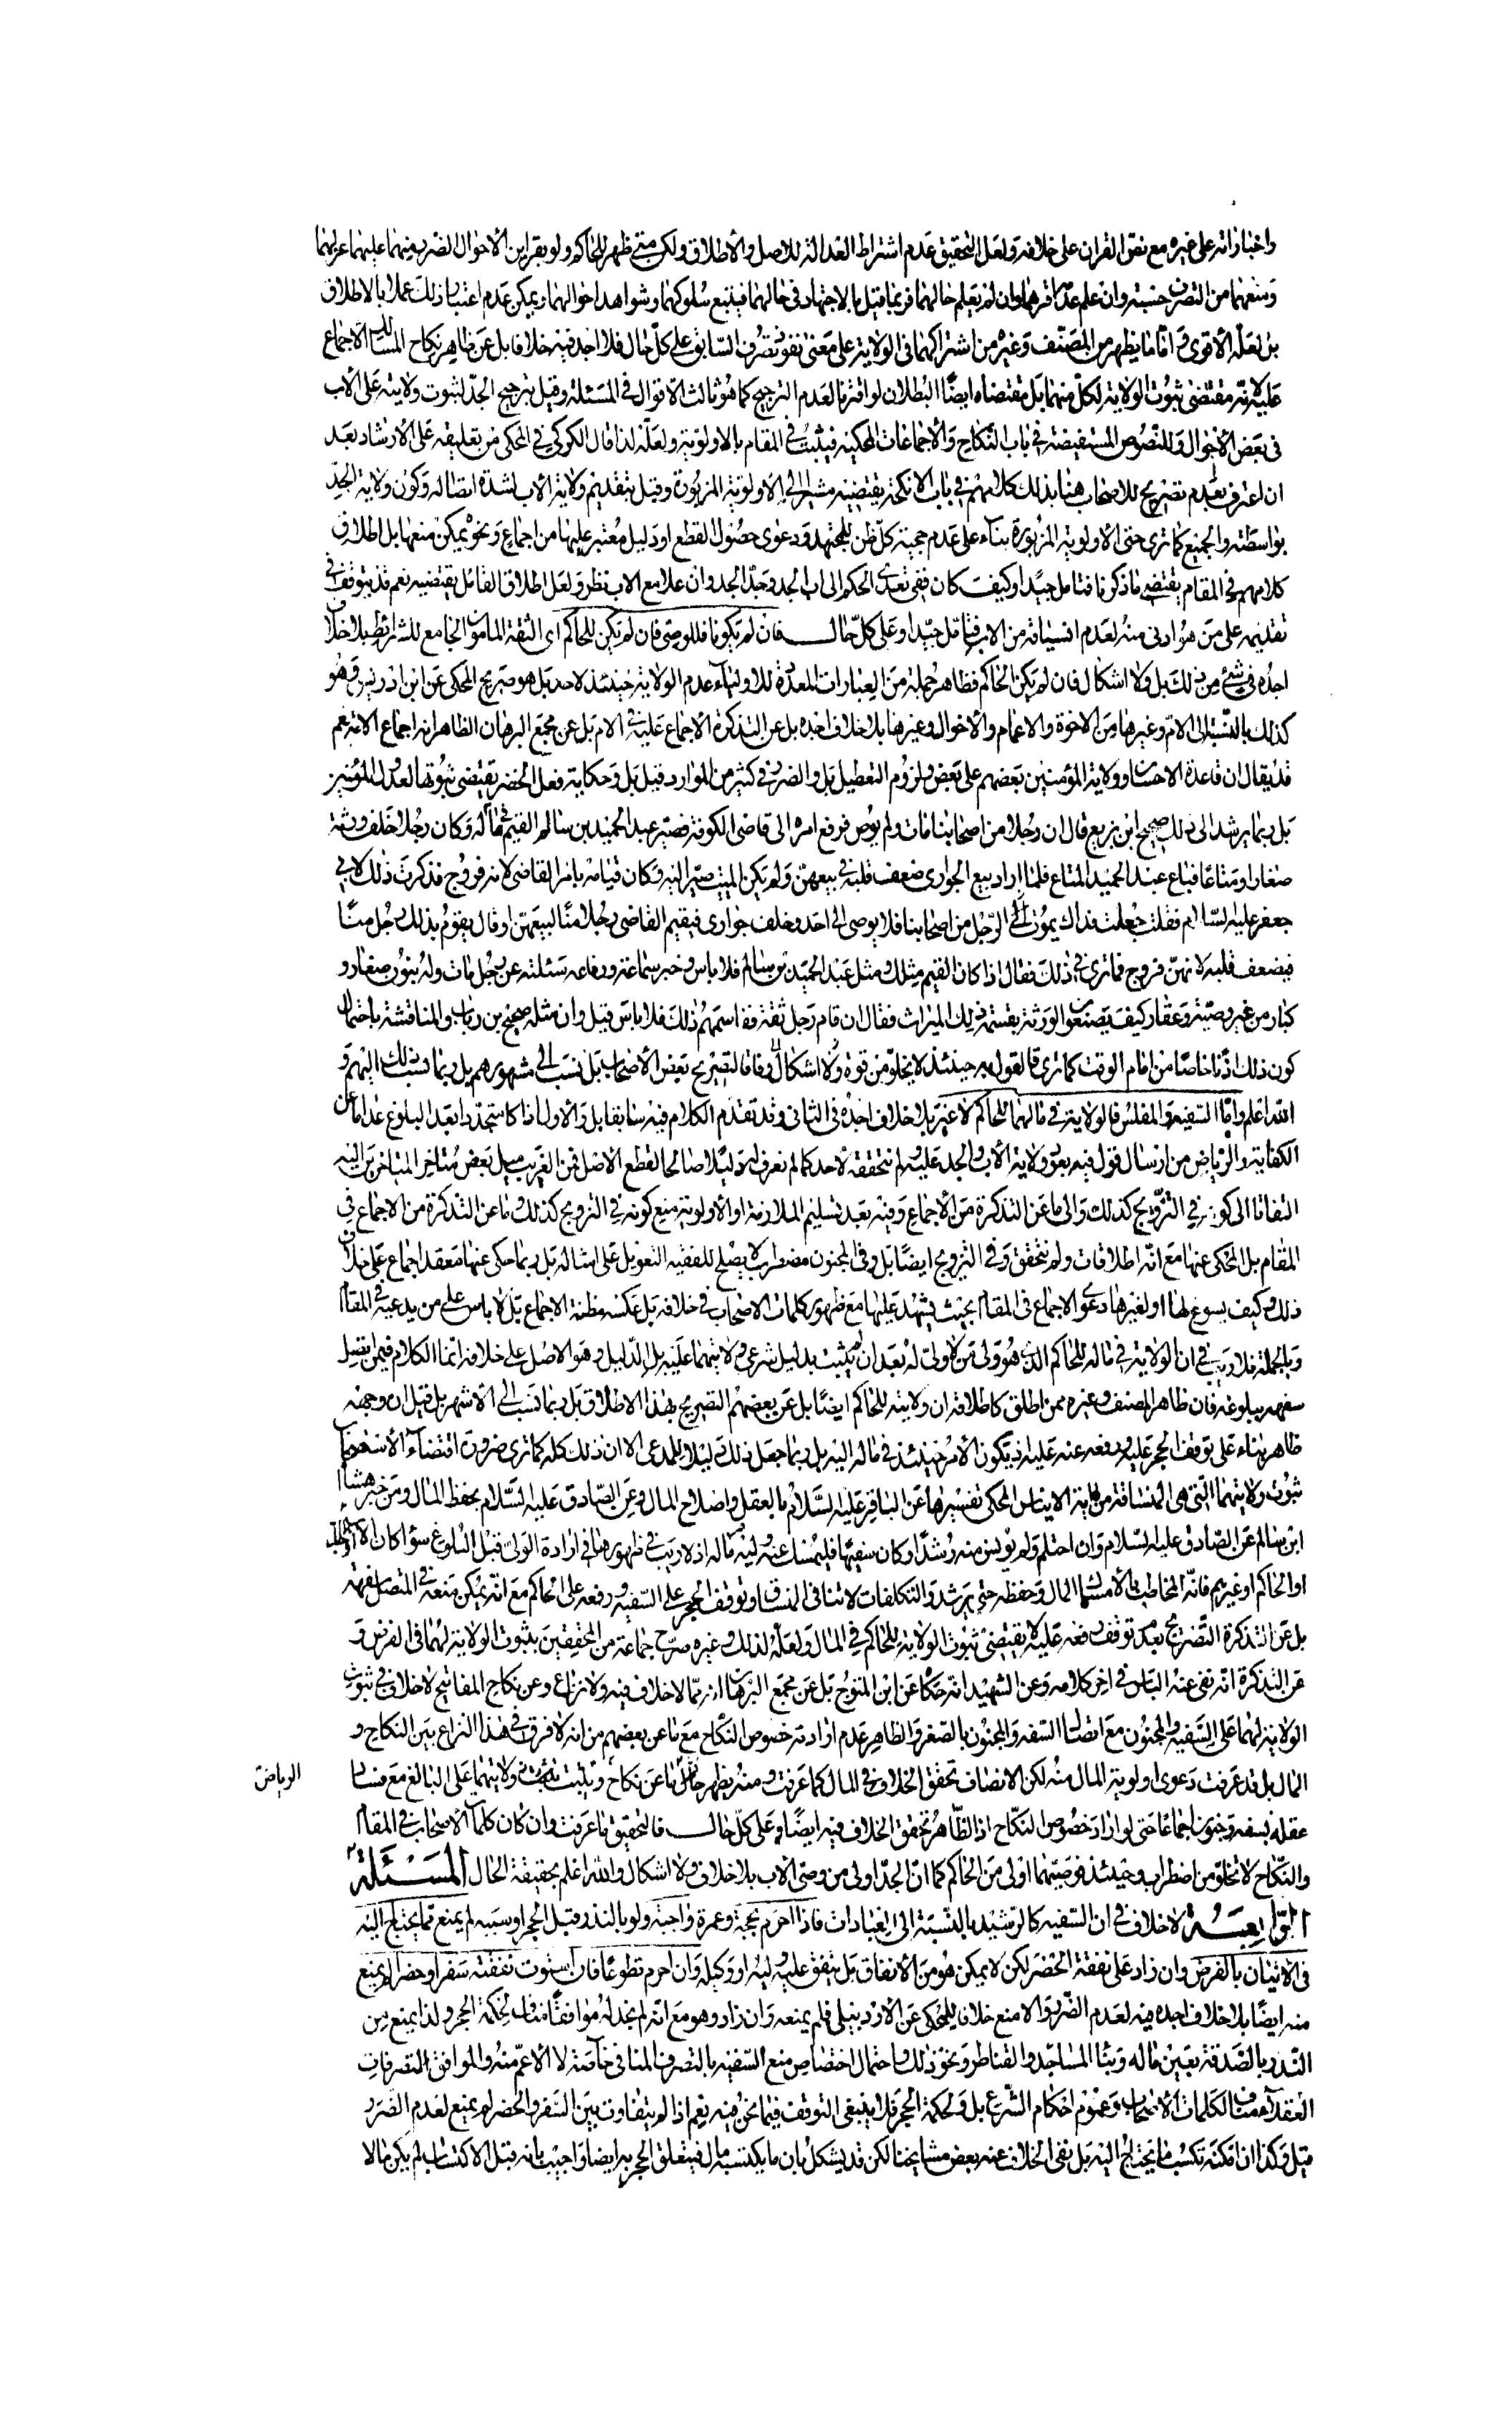 واخباراته على غيره مع نص القران على خلافه ولعل التحقيق عدم اشتراط العدالة للاصل والاطلاق ولكن متى ظهر للحاكم ولو بقراين الاحوال الضرر منهما عليهما عزلهما
ومنعهما من التصرف حسبة وان علم عدالتهما وان لم يعلم حالهما فربما قيل بالاجتهاد في حالهما فيتبع سلوكهما وشواهد احوالهما ويمكن عدم اعتبار ذلك عملا بالاطلاق
بل لعله الاقوى واما ما يظهر من المصنف وغيره من اشتراكهما في الولاية على معنى نفوذ تصرف السابق على كل حال فلا اجد فيه خلافا بل عن ظاهر نكاح المسالك الاجماع
عليه لانه مقتضى ثبوت الولاية لكل منهما بل مقتضاه ايضا البطلان لو اقترنا لعدم الترجيح كما هو ثالث الاقوال في المسئلة وقيل بترجيح الجد لثبوت ولايته على الاب
في بعض الاحوال وللنصوص المستفيضة في باب النكاح والاجماعات المحكية فيثبت في المقام بالاولوية ولعله لذا قال الكركي في المحكي من تعليقه على الارشاد بعد
ان اعترف بعدم تصريح للاصحاب هنا بذلك كلامهم في باب الانكحة يقتضيه مشيرا الى الاولوية المزبورة وقيل بتقديم ولاية الاب لشدة اتصاله وكون ولاية الجد
بواسطته والجميع كما ترى حتى الاولوية المزبورة بناء على عدم حجية كل ظن للمجتهد ودعوى حصول القطع او دليل معتبر عليها من اجماع ونحوه يمكن منعها بل اطلاق
كلامهم في المقام يقتضي ما ذكرنا فتامل جيدا وكيف كان ففي تعدي الحكم الى اب الجد وجد الجد وان علا مع الاب نظر ولعل اطلاق القائل يقتضيه نعم قد يتوقف في
تقديمه على من هو ادنى منه لعدم انسياقه من الاب فتامل جيدا وعلى كل حال فان لم يكونا فللوصي فان لم يكن للحاكم اي الثقة المامون الجامع للشرائط بلا خلاف
اجده في شئ من ذلك بل ولا اشكال فان لم يكن الحاكم فظاهر جملة من العبارات المعدة للاولياء عدم الولاية حينئذ لاحد بل هو صريح المحكي عن ابن ادريس وهو
كذلك بالنسبة الى الام وغيرها من الاخوة والاعمام والاخوال وغيرها بلا خلاف اجده بل عن التذكرة الاجماع عليه في الام بل عن مجمع البرهان الظاهر انه اجماع الامة نعم
قد يقال ان قاعدة الاحسان وولاية المؤمنين بعضهم على بعض ولزوم التعطيل بل والضرر في كثير من الموارد قيل بل وحكاية فعل الخضر يقتضي ثبوتها لعدول المؤمنين
بل ربما يرشد الى ذلك صحيح ابن بزيع قال ان رجلا من اصحابنا مات ولم يوص فرفع امره الى قاضي الكوفة فصير عبد الحميد بن سالم القيم في ماله وكان رجلا خلف ورثة
صغارا ومتاعا فباع عبد الحميد المتاع فلما اراد بيع الجواري ضعف قلبه في بيعهن ولم يكن الميت صير اليه وكان قيامه بامر القاضي لانه فروج فذكرت ذلك لابي
جعفر عليه السلام فقلت جعلت فداك يموت الرجل من اصحابنا فلا يوصي الى احد وخلف جواري فيقيم القاضي رجلا منا لبيعهن او قال يقوم بذلك رجل منا
فيضعف قلبه لانهن فروج فما ترى في ذلك فقال اذا كان القيم مثلك ومثل عبد الحميد بن سالم فلا باس وخبر سماعة ورفاعه سئلته عن رجل مات وله بنون صغار و
كبار من غير وصية وعقار كيف يصنعوا الورثة بقسمة ذلك الميراث فقال ان قام رجل ثقة فقاسمهم ذلك فلا باس قيل وان مثله صحيح بن رباب والمناقشة باحتمال
كون ذلك اذنا خاصا من امام الوقت كما ترى فالقول به حينئذ لا يخلو من قوة ولا اشكال وفاقا لتصريح بعض الاصحاب بل نسب الى مشهورهم بل ربما نسب ذلك اليهم و
الله اعلم واما السفيه والمفلس فالولاية في مالهما للحاكم لا غير بلا خلاف اجده في الثاني وقد تقدم الكلام فيه سابقا بل والاول اذا كان متجددا بعد البلوغ عدا ما عن
الكفاية والرياض من ارسال قول فيه بعود ولاية الاب والجد عليه ولم نتحققه لاحد كما لم نعرف له دليلا صالحا لقطع الاصل فمن الغريب ميل بعض متاخر المتاخرين اليه
التفاتا الى كونه في التزويج كذلك والى ما عن التذكرة من الاجماع وفيه بعد تسليم الملازمة او الاولوية منع كونه في التزويج كذلك وما عن التذكرة من الاجماع في
المقام بل المحكي عنها مع انه اطلاقات ولم نتحقق وفي التزويج ايضا بل وفي المجنون مضطرب لا يصلح للفقيه التعويل على امثاله بل ربما حكى عنها معقد اجماع على خلاف
ذلك وكيف يسوغ لها او لغيرها دعوى الاجماع في المقام بحيث يشهد عليها مع ظهور كلمات الاصحاب في خلافه بل عكسه مظنة الاجماع بل لا باس على من يدعيه في المقام
وبالجملة فلا ريب في ان الولاية في ماله للحاكم الذي هو ولي من لا ولي له بعد ان لم يثبت بدليل شرعي ولايتهما عليه بل الدليل وهو الاصل على خلافه انما الكلام فيمن اتصل
سفهه ببلوغه فان ظاهر المصنف وغيره ممن اطلق كاطلاقه ان ولايته للحاكم ايضا بل عن بعضهم التصريح بهذا الاطلاق بل ربما نسب الى الاشهر بل قيل ان وجهه
ظاهر بناء على توقف الحجر عليه ورفعه عنه عليه اذ يكون الامر حينئذ في ماله اليه بل ربما جعل ذلك دليلا للمدعى الا ان ذلك كله كما ترى ضرورة اقتضاء الاستصحاب
ثبوت ولايتهما التي هي المنساقة من اية الايناس المحكي تفسيرها عن الباقر عليه السلام بالعقل واصلاح المال وعن الصادق عليه السلام بحفظ المال ومن خبر هشام
ابن سالم عن الصادق عليه السلام وان احتلم ولم يونس منه رشدا وكان سفيها فليمسك عنه وليه ماله اذ لا ريب في ظهورهما في ارادة الولي قبل البلوغ سواء كان الاب او الجد
او الحاكم او غيرهم فانه المخاطب بالامساك المال وحفظه حتى يرشد والتكلفات لا تنافي المنساق وتوقف الحجر على السفيه ورفعه على الحاكم مع انه يمكن منعه في المتصل سفهه
بل عن التذكرة التصريح بعدم توقف رفعه عليه لا يقتضي ثبوت الولاية للحاكم في المال ولعله لذلك وغيره صرح جماعة من المحققين بثبوت الولاية لهما في الفرض و
عن التذكرة انه نفى عنه الباس في اخر كلامه وعن الشهيد انه حكاه عن ابن المتوج بل عن مجمع البرهان انه مما لا خلاف فيه ولا نزاع وعن نكاح المفاتيح لا خلاف في ثبوت
الولاية لهما على السفيه والمجنون مع اتصال السفه والجنون بالصغر والظاهر عدم ارادته خصوص النكاح مع ما عن بعضهم من انه لا فرق في هذا النزاع بين النكاح و
المال بل قد عرفت دعوى اولوية المال منه لكن الانصاف تحقق الخلاف في المال كما عرفت ومنه يظهر ما عن نكاح وتثبت ولايتهما على البالغ مع فساد
الرياض
عقله بسفه وجنون اجماعا حتى لو اراد خصوص النكاح اذ الظاهر تحقق الخلاف فيه ايضا وعلى كل حال فالتحقيق ما عرفت وان كان كلمات الاصحاب في المقام
والنكاح لا تخلو من اضطراب وحينئذ فوصيهما اولى من الحاكم كما ان الجد اولى من وصي الاب بلا خلاف ولا اشكال والله اعلم بحقيقة الحال المسئلة
الرابعة لا خلاف في ان السفيه كالرشيد بالنسبة الى العبادات فاذا احرم بحجة وعمرة واجبة ولو بالنذر وقبل الحجر او سببه لم يمنع مما يحتاج اليه
في الاتيان بالفرض وان زاد على نفقة الحضر لكن لا يمكن هو من الانفاق بل ينفق عليه وليه او وكيله وان احرم تطوعا فان استوت نفقته سفرا وحضرا لم يمنع
منه ايضا بلا خلاف اجده فيه لعدم الضرر والا منع خلافا للمحكي عن الاردبيلي فلم يمنعه وان زاد وهو مع انه لم نجد له موافقا مناف لحكمة الحجر ولذا يمنع من
النذر بالصدقة بعين ماله وبناء المساجد والقناطر ونحو ذلك واحتمال اختصاص منع السفيه بالتصرف المنافي خاصة لا الاعم منه والموافق لتصرفات
العقلاء مناف لكلمات الاصحاب وعموم احكام الشرع بل ولحكمة الحجر فلا ينبغي التوقف فيما نحن فيه نعم اذا لم يتفاوت بين السفر والحضر لم يمنع لعدم الضرر
قيل وكذا ان امكنه تكسب ما يحتاج اليه بل نفى الخلاف عنه بعض مشايخنا لكن قد يشكل بان ما يكتسبه مال فيتعلق الحجر به ايضا واجيب بانه قبل الاكتساب لم يكن مالا